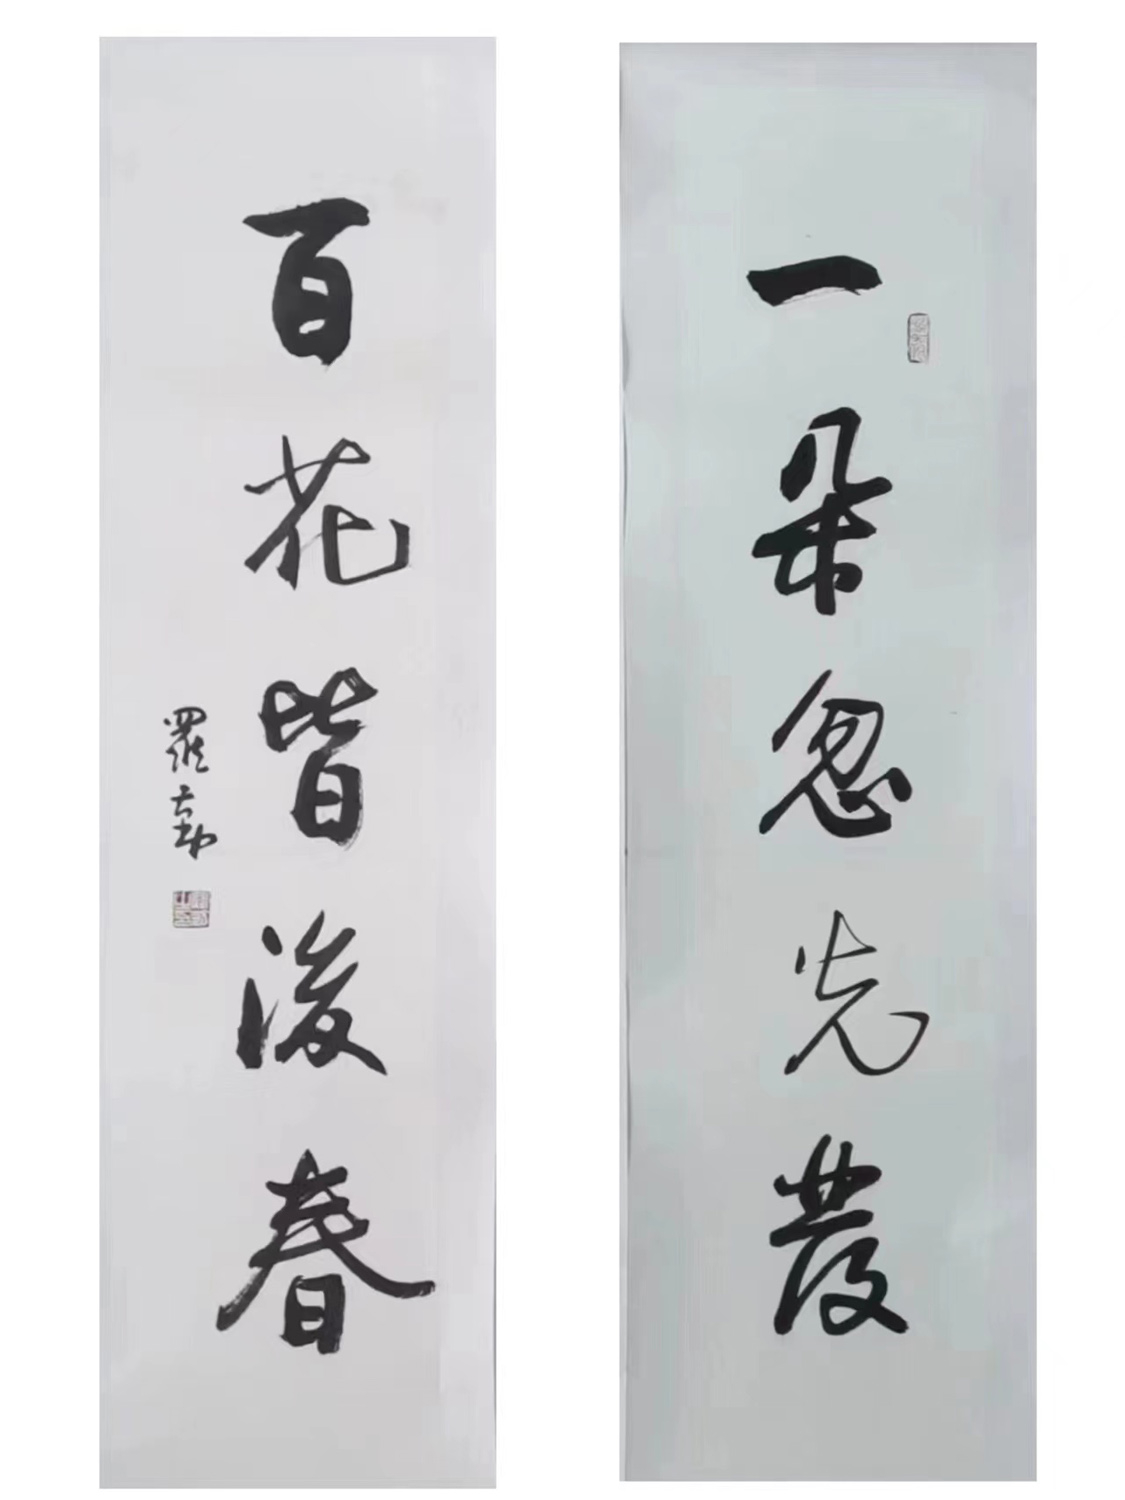 一朵忽先發
百花皆後春
羅勤